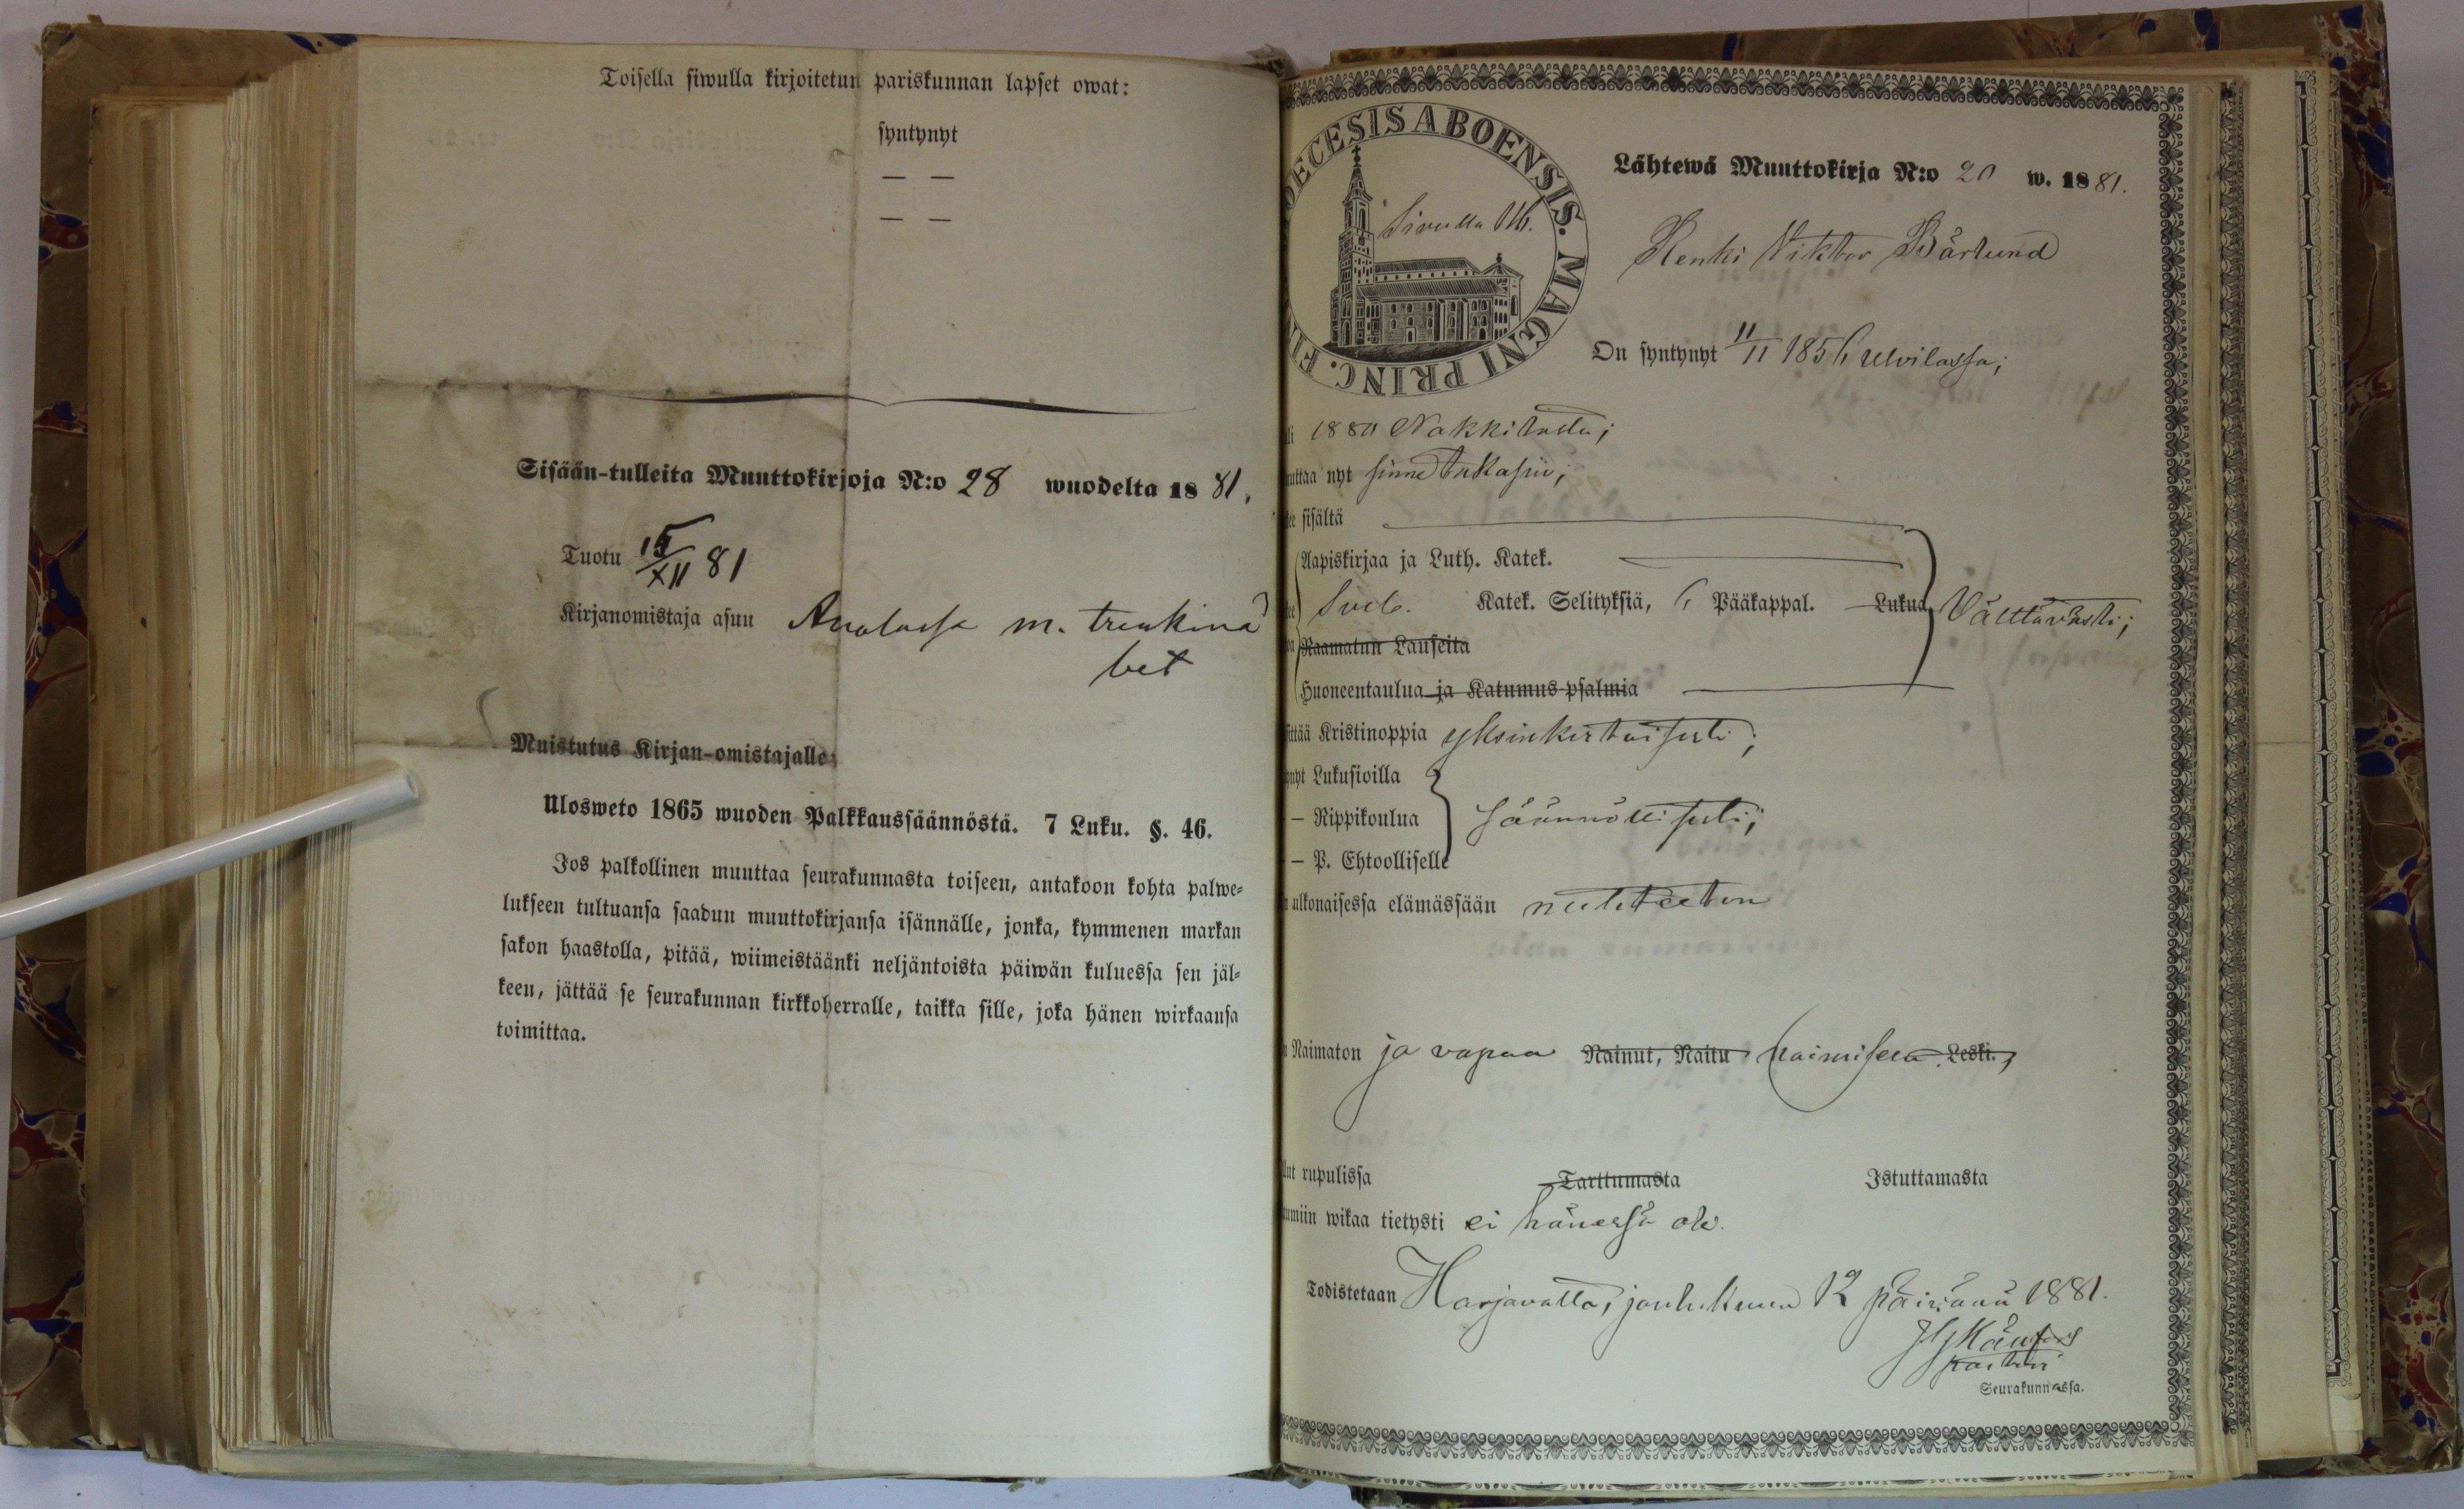 Toisella siwulla kirjoitetun pariskunnan lapset owat:
syntynyt
— —
— —
Sisään-tulleita Muuttokirjoja N:o 28 wuodelta 1881.
Tuotu 15/XII 81
Kirjanomistaja asuu m.
Muistutus Kirjan-omistajalle;
Ulosweto 1865 wuoden Palkkaussäännöstä. 7 Luku. §. 46.
Jos palkollinen muuttaa seurakunnasta toiseen, antakoon kohta palwe-
lukseen tultuansa saadun muuttokirjansa isännälle, jonka, kymmenen markan
sakon haastolla, pitää, wiimeistäänki neljäntoista päiwän kuluessa sen jäl-
keen, jättää se seurakunnan kirkkoherralle, taikka sille, joka hänen wirkaansa
toimittaa.
DECESIS ABOENSIS. MAGNI PRINC. FIN
Sivulla
Lähtewä Muuttokirja N:o 20 w. 1881.
Renki Viktor Bärlund
On syntynyt 11/11 1856 Ulvilassa;
li 1880 Nakkilasta;
uttaa nyt sinne takasin;
ee sisältä
Aapiskirjaa ja Luth. Katek.
Sveb. Katek. Selityksiä, 6 Pääkappal. Lukua
Välttävästi;
Raamatun Lauseita
Huoneentaulua ja Katumus-psalmia
ittää Kristinoppia yksinkertaisesti;
ynyt Lukusioilla
— Rippikoulua säännöllisesti;
— P. Ehtoolliselle
ulkonaisessa elämässään nuhteeton
Naimaton ja vapaa Nainut, Naitu naimiseen Leski.
lut rupulissa Tarttumasta Istuttamasta
umiin wikaa tietysti ei hänessä ole.
Todistetaan Harjavalta, joulukuun 12 päivänä 1881.
Seurakunnassa.